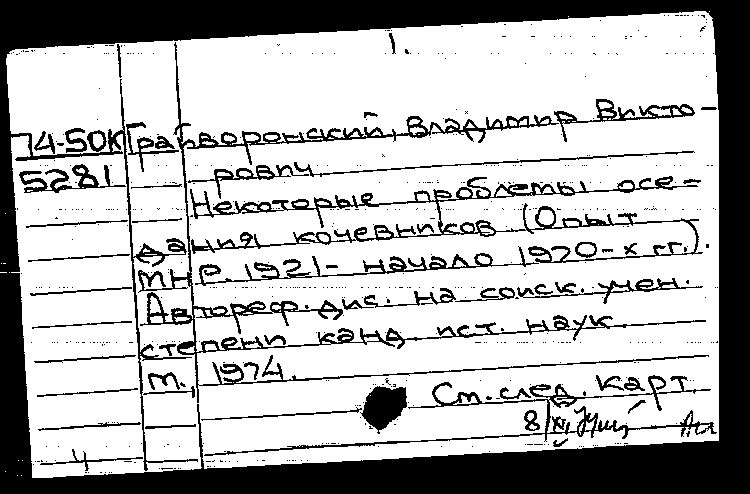 1.
74-50К Грайворонский, Владимир Викто-
5281 рович.
Некоторые проблемы осе-
дания кочевников (Опыт
МНР. 1921- начало 1970-х гг.).
Автореф. дис. на соиск. учен.
степени канд. ист. наук.
М., 1974.
См. след. карт.
8/XII
4